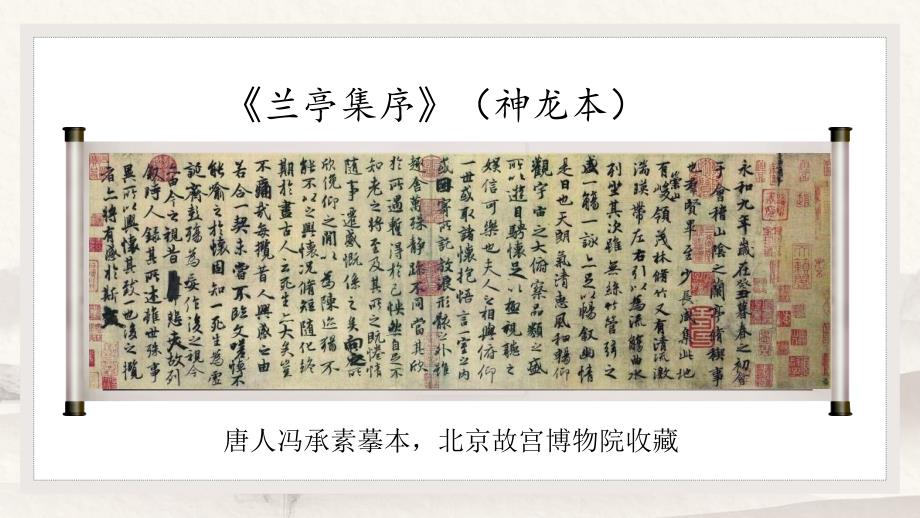 《兰亭集序》（神龙本）
永和九年歲在癸丑暮春之初會
于會稽山陰之蘭亭脩稧事
也羣賢畢至少長咸集此地
有崇山峻領茂林脩竹又有清流激
湍暎帶左右引以為流觴曲水
列坐其次雖無絲竹管弦之
盛一觴一詠亦足以暢敘幽情
是日也天朗氣清惠風和暢仰
觀宇宙之大俯察品類之盛
所以遊目騁懷足以極視聽之
娛信可樂也夫人之相與俯仰
一世或取諸懷抱悟言一室之內
或因寄所託放浪形骸之外雖
趣舍萬殊靜躁不同當其欣
於所遇蹔得於己怏然自足不
知老之將至及其所之既惓情
隨事遷感慨係之矣向之所
欣俛仰之閒以為陳迹猶不
能不以之興懷況脩短隨化終
期於盡古人云死生亦大矣豈
不痛哉每攬昔人興感之由
若合一契未嘗不臨文嗟悼不
能喻之於懷固知一死生為虛
誕齊彭殤為妄作後之視今
亦由今之視昔悲夫故列
敘時人錄其所述雖世殊事
異所以興懷其致一也後之攬
者亦將有感於斯文
唐人冯承素摹本，北京故宫博物院收藏